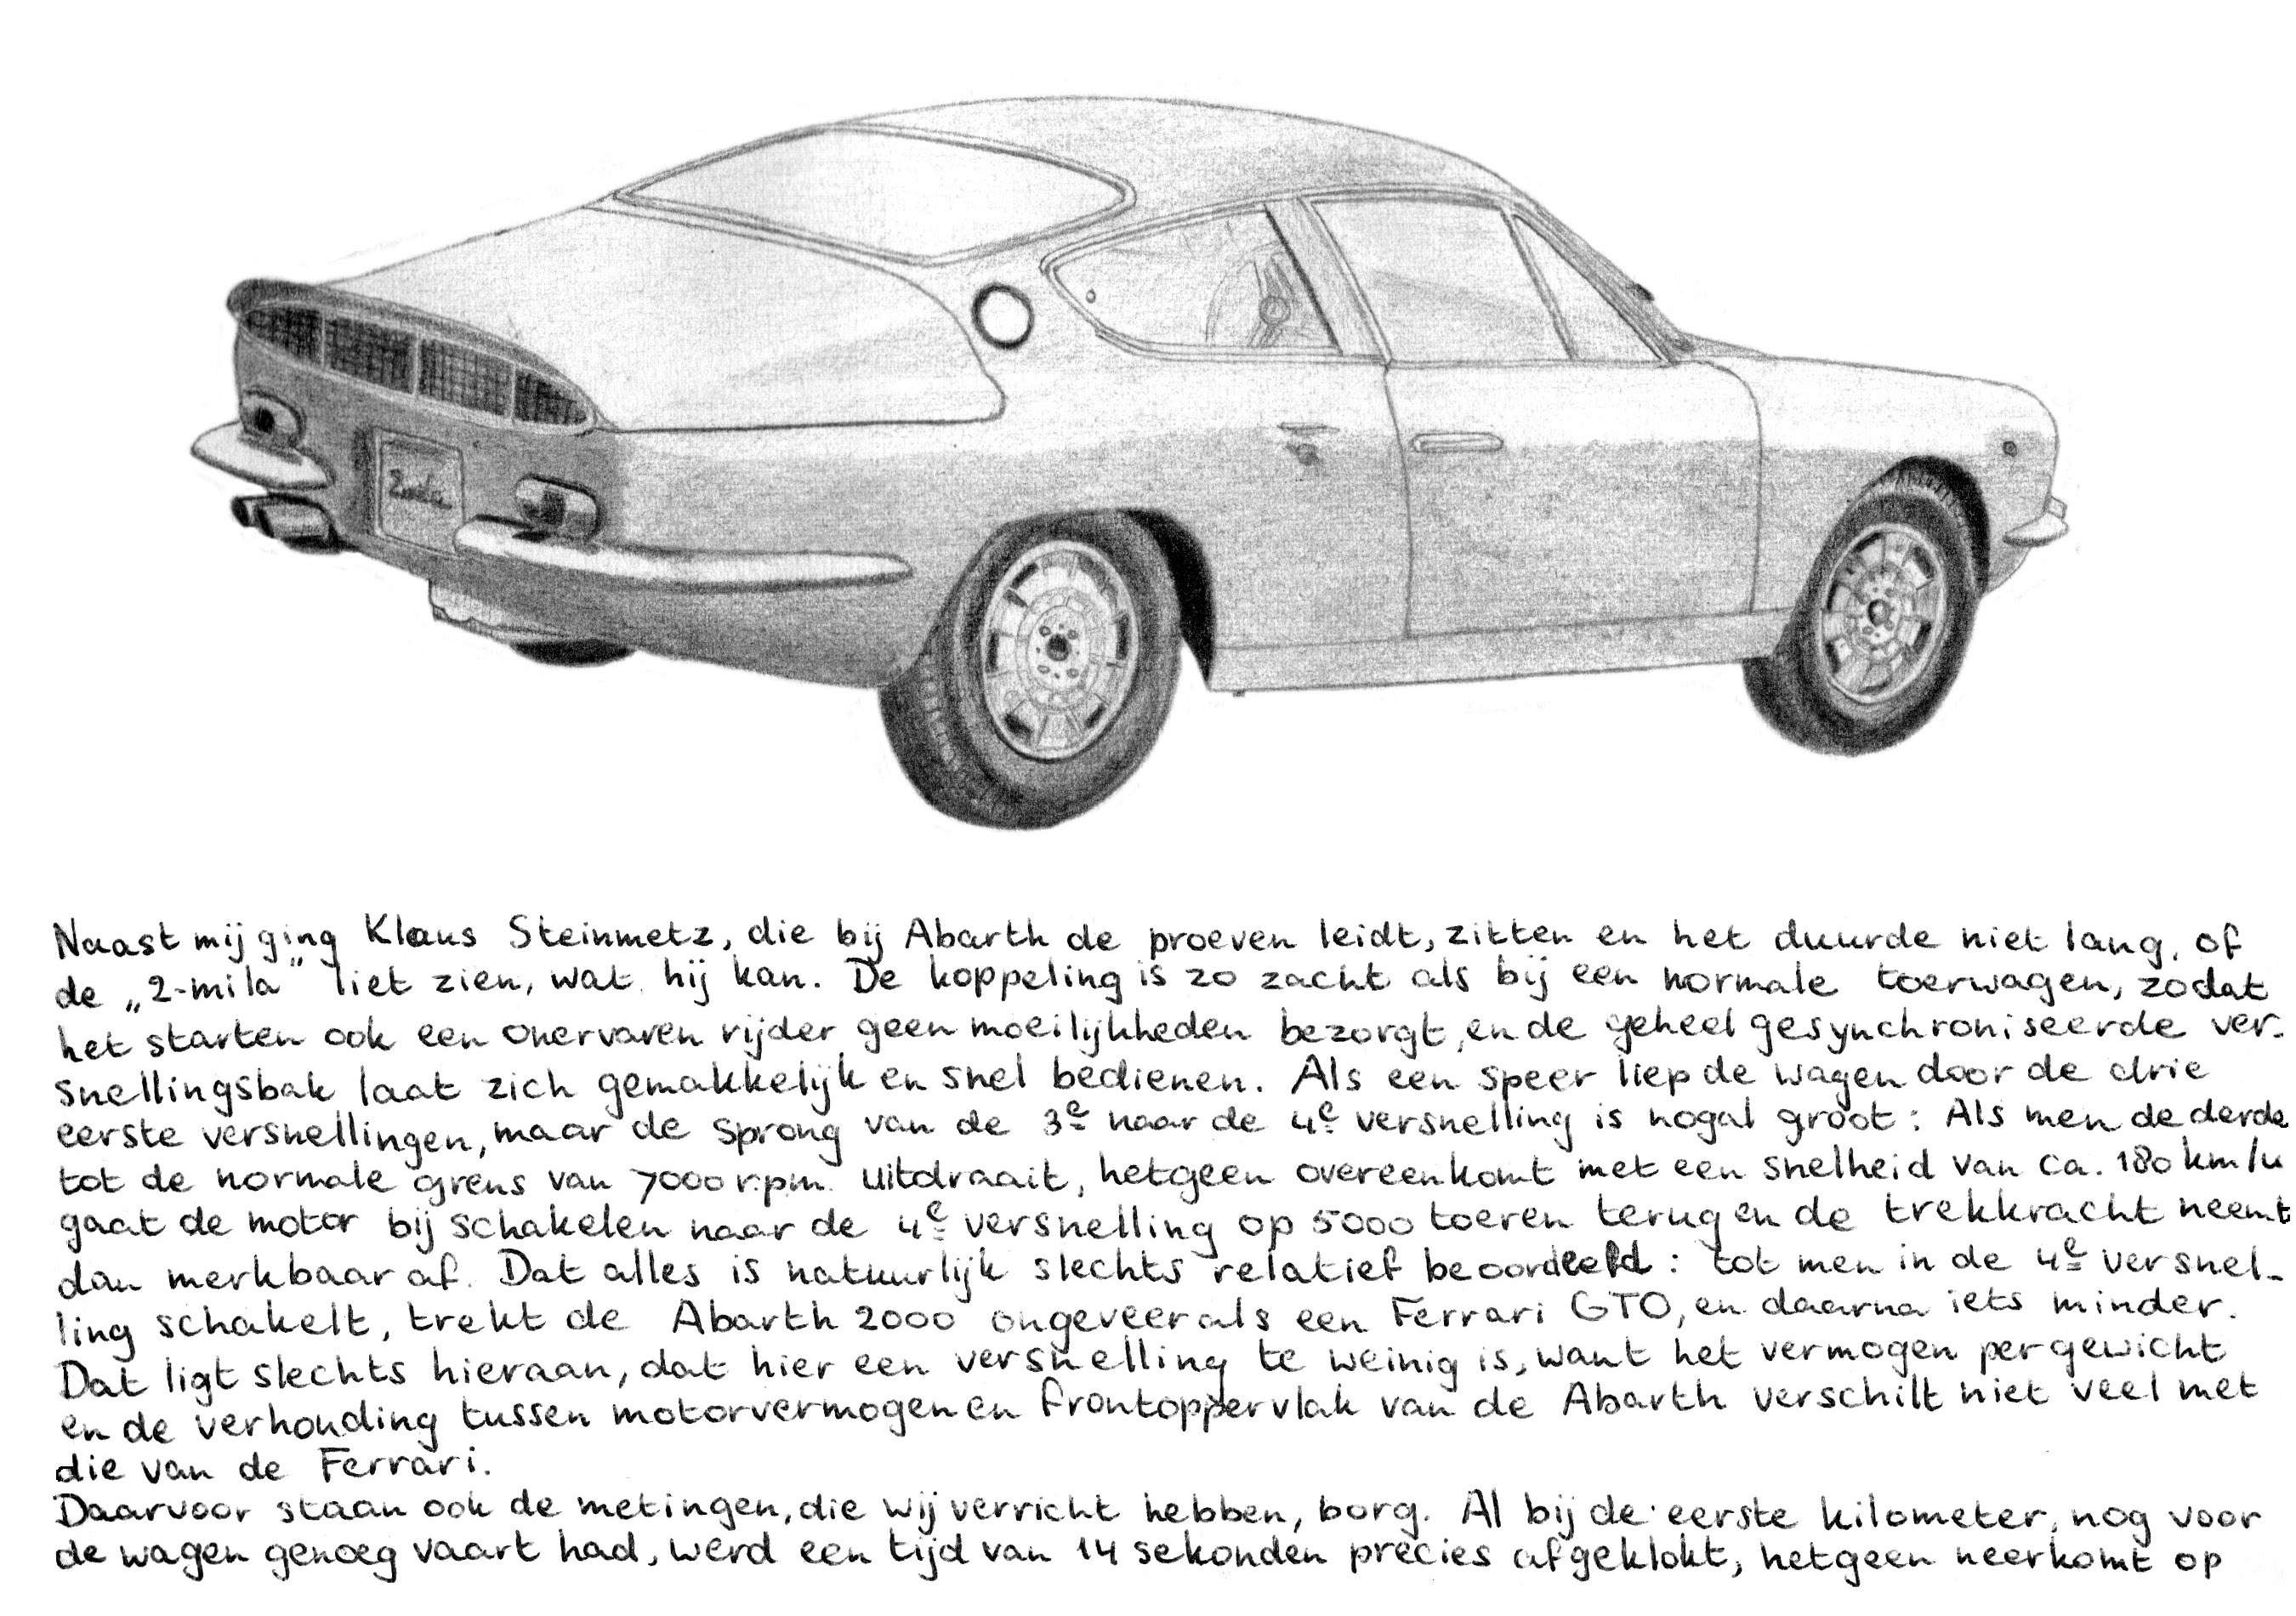 Naast mij ging Klaus Steinmetz, die bij Abarth de proeven leidt, zitten en het duurde niet lang, of
de „2-mila” liet zien, wat hij kan. De koppeling is zo zacht als bij een normale toerwagen, zodat
het starten ook een onervaren rijder geen moeilijkheden bezorgt, en de geheel gesynchroniseerde ver-
snellingsbak laat zich gemakkelijk en snel bedienen. Als een speer liep de wagen door de drie
eerste versnellingen, maar de sprong van de 3e naar de 4e versnelling is nogal groot: Als men de derde
tot de normale grens van 7000 r.p.m. uitdraait, hetgeen overeenkomt met een snelheid van ca. 180 km/u
gaat de motor bij schakelen naar de 4e versnelling op 5000 toeren terug en de trekkracht neemt
dan merkbaar af. Dat alles is natuurlijk slechts relatief beoordeeld: tot men in de 4e versnel-
ling schakelt, trekt de Abarth 2000 ongeveer als een Ferrari GTO, en daarna iets minder.
Dat ligt slechts hieraan, dat hier een versnelling te weinig is, want het vermogen per gewicht
en de verhouding tussen motorvermogen en frontoppervlak van de Abarth verschilt niet veel met
die van de Ferrari.
Daarvoor staan ook de metingen, die wij verricht hebben, borg. Al bij de eerste kilometer, nog voor
de wagen genoeg vaart had, werd een tijd van 14 sekonden precies afgeklokt, hetgeen neerkomt op